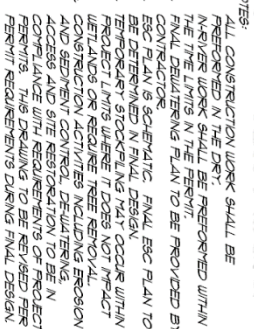 NOTES:
ALL CONSTRUCTION WORK SHALL BE
PREFORMED IN THE DRY.
IN-RIVER WORK SHALL BE PREFORMED WITHIN
THE TIME LIMITS IN THE PERMIT.
FINAL DEWATERING PLAN TO BE PROVIDED BY
CONTRACTOR.
ESC PLAN IS SCHEMATIC. FINAL ESC PLAN TO
BE DETERMINED IN FINAL DESIGN.
TEMPORARY STOCKPILING MAY OCCUR WITHIN
PROJECT LIMITS WHERE IT DOES NOT IMPACT
WETLANDS OR REQUIRE TREE REMOVAL.
CONSTRUCTION ACTIVITIES INCLUDING EROSION
AND SEDIMENT CONTROL, DEWATERING,
ACCESS AND SITE RESTORATION TO BE IN
COMPLIANCE WITH REQUIREMENTS OF PROJECT
PERMITS. THIS DRAWING TO BE REVISED PER
PERMIT REQUIREMENTS DURING FINAL DESIGN.